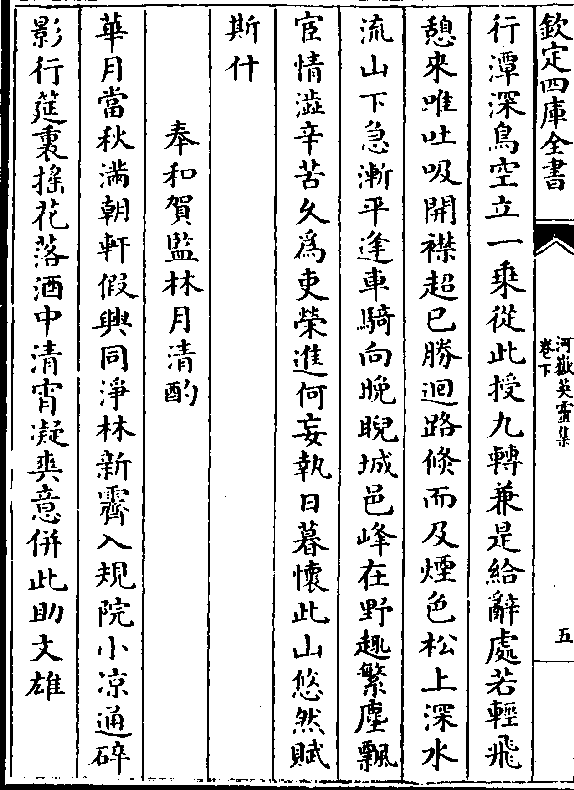 欽定四庫全書
河嶽英靈集
卷下
五
行潭深鳥空立一乘從此授九轉兼是給辭處若輕飛
憩來唯吐吸開襟超已勝迴路倐而及煙色松上深水
流山下急漸平逢車騎向晚睨城邑峰在野趣繁塵飄
宦情澁辛苦久爲吏榮進何妄執日暮懷此山悠然賦
斯什
奉和賀監林月清酌
華月當秋滿朝軒假興同淨林新霽入規院小凉通碎
影行筵裏揺花落酒中清宵凝爽意併此助文雄